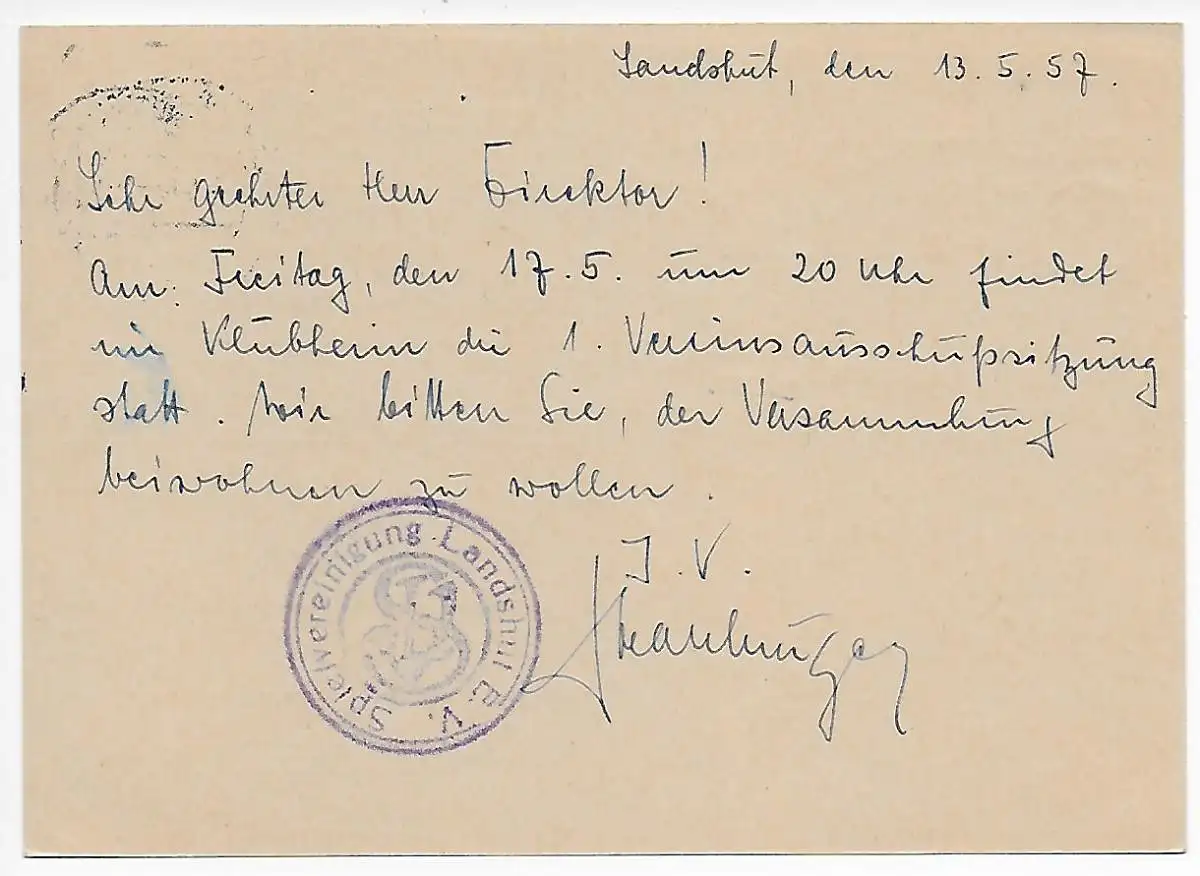 Landshut, den 13.5.57.
Sehr geehrter Herr Direktor!
Am Freitag, den 17.5. um 20 Uhr findet
im Klubheim die 1. Vereinsausschußsitzung
statt. Wir bitten Sie, der Versammlung
beiwohnen zu wollen.
I.V.
Spielvereinigung Landshut E.V.